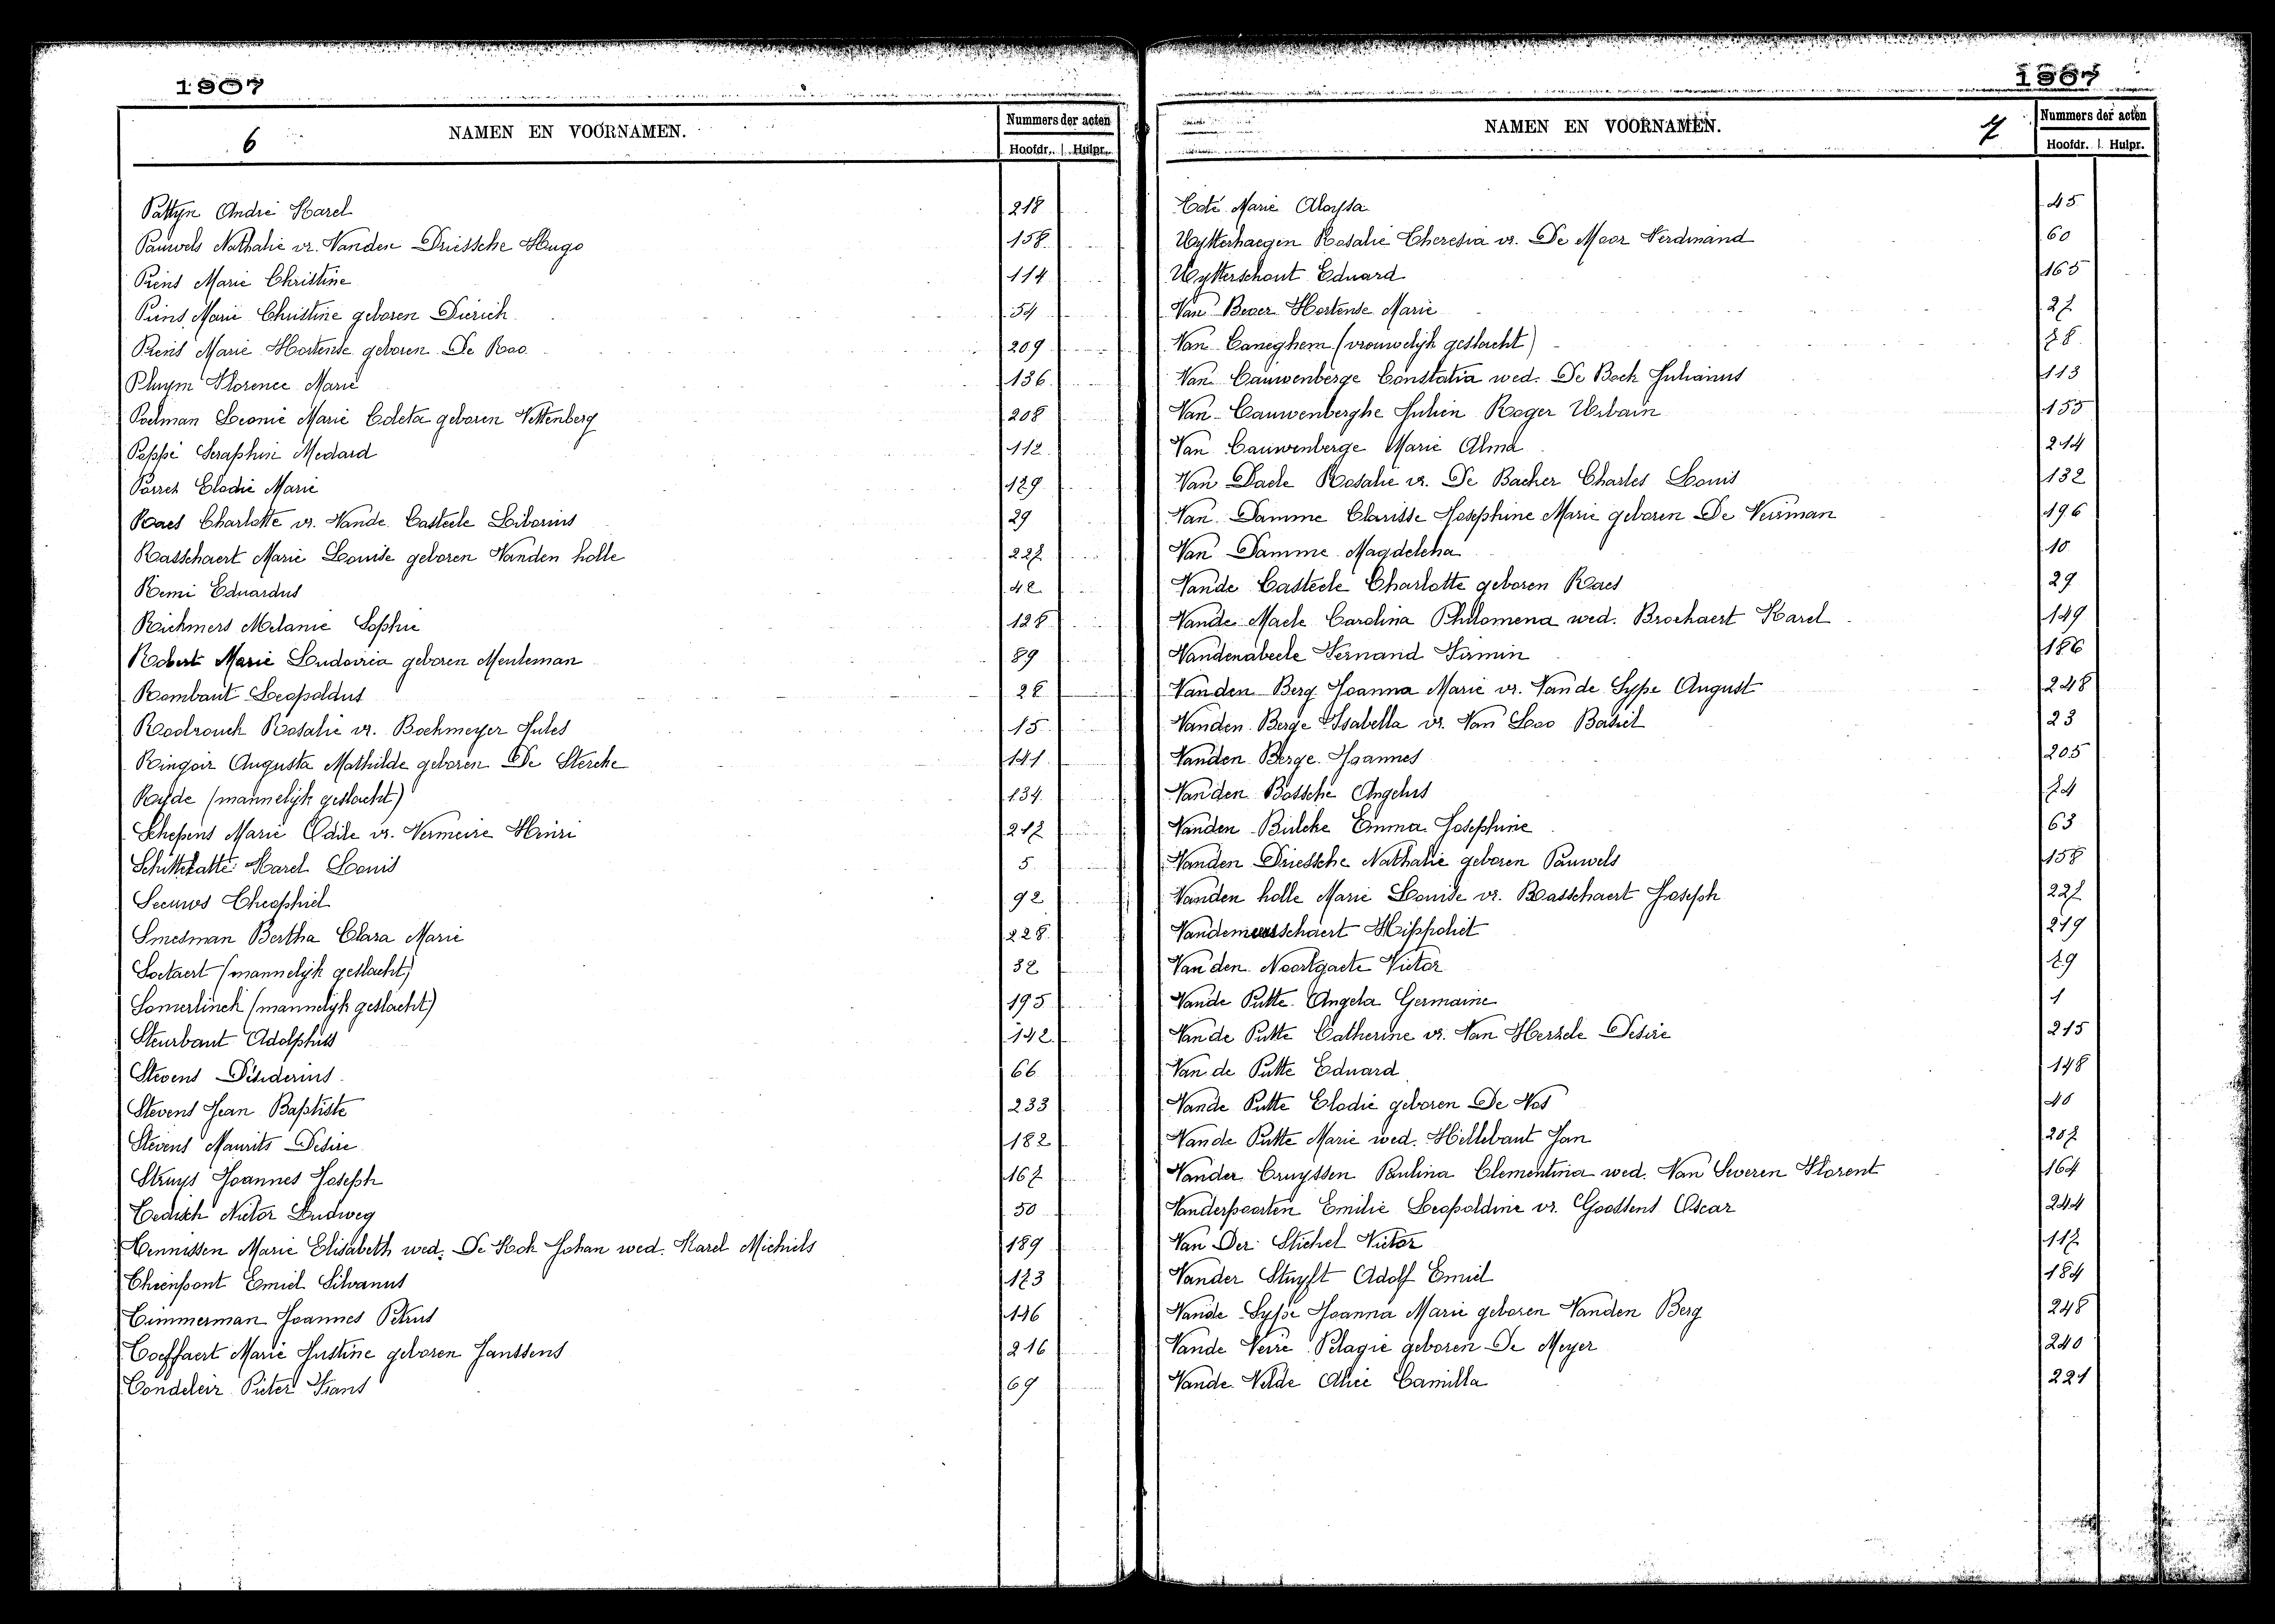 1907
6
NAMEN EN VOORNAMEN.
Nummers der acten
Hoofdr. Hulpr.
Pattyn André Karel 218
Pauwels Nathalie vr. Vanden Driessche Hugo 158
Piens Marie Christine 114
Piens Marie Christine geboren Dierich 54
Piens Marie Hortense geboren De Roo 209
Pluym Florence Marie 136
Poelman Leonie Marie Coleta geboren Vettenberg 208
Poppe Seraphin Medard 112
Porrez Elodie Marie 129
Raes Charlotte vr. Vande Casteele Liborius 29
Rasschaert Marie Louise geboren Vanden holle 227
Remi Eduardus 42
Richmers Melanie Sophie 128
Robert Marie Ludovica geboren Meuleman 89
Rombaut Leopoldus 28
Roelrouck Rosalie vr. Bockmeyer Jules 15
Ringoir Augusta Mathilde geboren De Stercke 141
Ryde (mannelijk geslacht) 134
Schepens Marie Odile vr. Vermeire Henri 217
Schittekatte Karel Louis 5
Seeuws Theophiel 92
Smesman Bertha Clara Marie 228
Soetaert (mannelijk geslacht) 32
Somerlinck (mannelijk geslacht) 195
Steurbaut Adolphus 142
Stevens Desiderius 66
Stevens Jean Baptiste 233
Stevens Maurits Desire 182
Struys Joannes Joseph 167
Tedisch Victor Ludweg 50
Tennissen Marie Elisabeth wed. De Kok Johan wed. Karel Michiels 189
Thienpont Emiel Silvanus 123
Timmerman Joannes Petrus 116
Toeffaert Marie Justine geboren Janssens 216
Tondeleir Pieter Frans 69
1907
NAMEN EN VOORNAMEN.
7
Nummers der acten
Hoofdr. Hulpr.
Toté Marie Aloysa 45
Uytterhaegen Rosalie Theresia vr. De Moor Ferdinand 60
Uytterschout Eduard 165
Van Bever Hortense Marie 27
Van Caneghem (vrouwelijk geslacht) 78
Van Cauwenberge Constatia wed. De Bock Julianus 113
Van Cauwenberghe Julien Roger Urbain 155
Van Cauwenberge Marie Alma 214
Van Daele Rosalie vr. De Backer Charles Louis 132
Van Damme Clarisse Josephine Marie geboren De Veirman 196
Van Damme Magdelena 10
Vande Casteele Charlotte geboren Raes 29
Vande Maele Carolina Philomena wed. Brochaert Karel 149
Vandenabeele Fernand Firmin 186
Vanden Berg Joanna Marie vr. Vande Sype August 248
Vanden Berge Isabella vr. Van Loo Basiel 23
Vanden Berge Joannes 205
Vanden Bossche Angelus 74
Vanden Bulcke Emma Josephine 63
Vanden Driessche Nathalie geboren Pauwels 158
Vanden holle Marie Louise vr. Rasschaert Joseph 227
Vandemeersschaert Hippoliet 219
Van den Noortgaete Victor 79
Vande Putte Angela Germaine 1
Vande Putte Catherine vr. Van Herzele Desire 215
Van de Putte Eduard 148
Vande Putte Elodie geboren De Vos 40
Vande Putte Marie wed. Hillebaut Jan 207
Vander Cruyssen Paulina Clementina wed. Van Severen Florent 164
Vanderpoorten Emilie Leopoldine vr. Goossens Oscar 244
Van Der Stichel Victor 117
Vander Stuyft Adolf Emiel 184
Vande Sype Joanna Marie geboren Vanden Berg 248
Vande Veire Pelagie geboren De Meyer 240
Vande Velde Alice Camilla 221